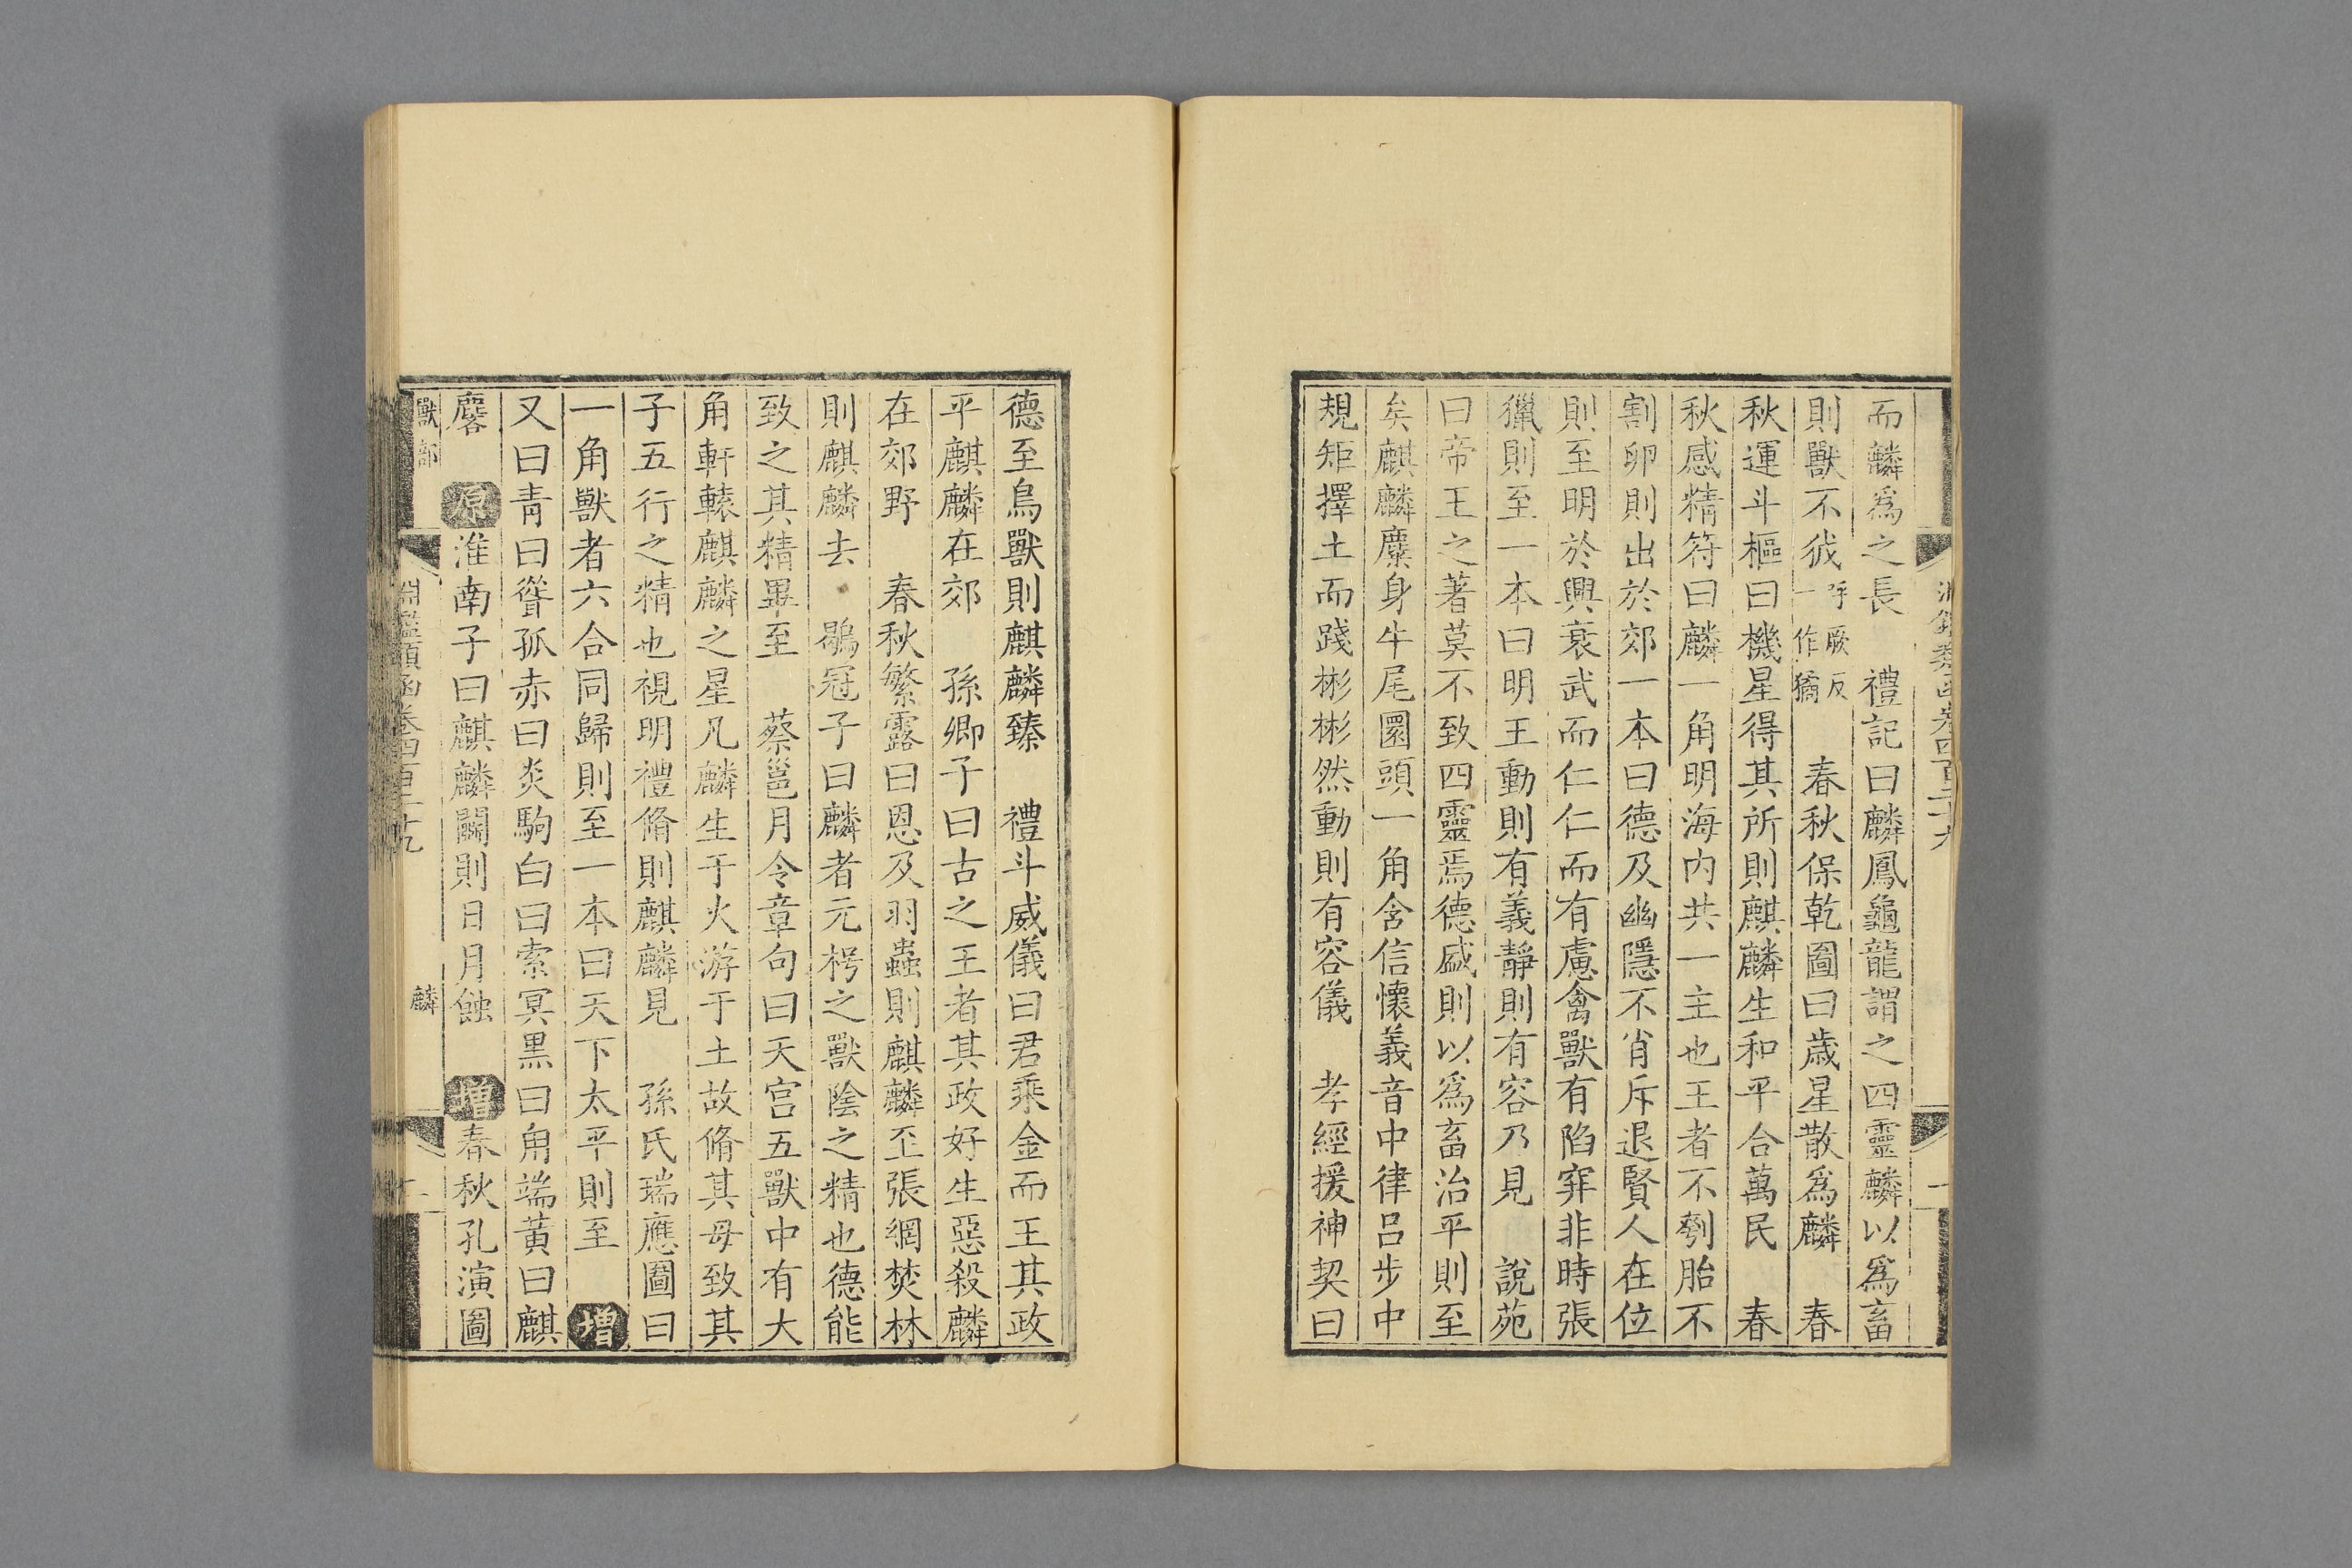 而麟爲之長　禮記曰麟鳳龜龍謂之四靈麟以爲畜
則獸不狘呼厥反一作獝　春秋保乾圖曰歲星散爲麟　春
秋運斗樞曰機星得其所則麒麟生和平合萬民　春
秋感精符曰麟一角明海内共一主也王者不刳胎不
割卵則出於郊一本曰德及幽隱不肖斥退賢人在位
則至明於興衰武而仁仁而有慮禽獸有陷穽非時張
獵則至一本曰明王動則有義靜則有容乃見　說苑
曰帝王之著莫不致四靈焉德盛則以爲畜治平則至
矣麒麟麋身牛尾圜頭一角含信懷義音中律呂步中
規矩擇土而踐彬彬然動則有容儀　孝經援神契曰
德至鳥獸則麒麟臻　禮斗威儀曰君乘金而王其政
平麒麟在郊　孫卿子曰古之王者其政好生惡殺麟
在郊野　春秋繁露曰恩及羽蟲則麒麟至張網焚林
則麒麟去　鶡冠子曰麟者元枵之獸陰之精也德能
致之其精畢至　蔡邕月令章句曰天宫五獸中有大
角軒轅麒麟之星凡麟生于火游于土故脩其母致其
子五行之精也視明禮脩則麒麟見　孫氏瑞應圖曰
一角獸者六合同歸則至一本曰天下太平則至　增
又曰青曰聳孤赤曰炎駒白曰索冥黒曰角端黃曰麒
麐　原淮南子曰麒麟鬭則日月蝕　增春秋孔演圖
獸部
淵鑑類函卷四百二十九
麟